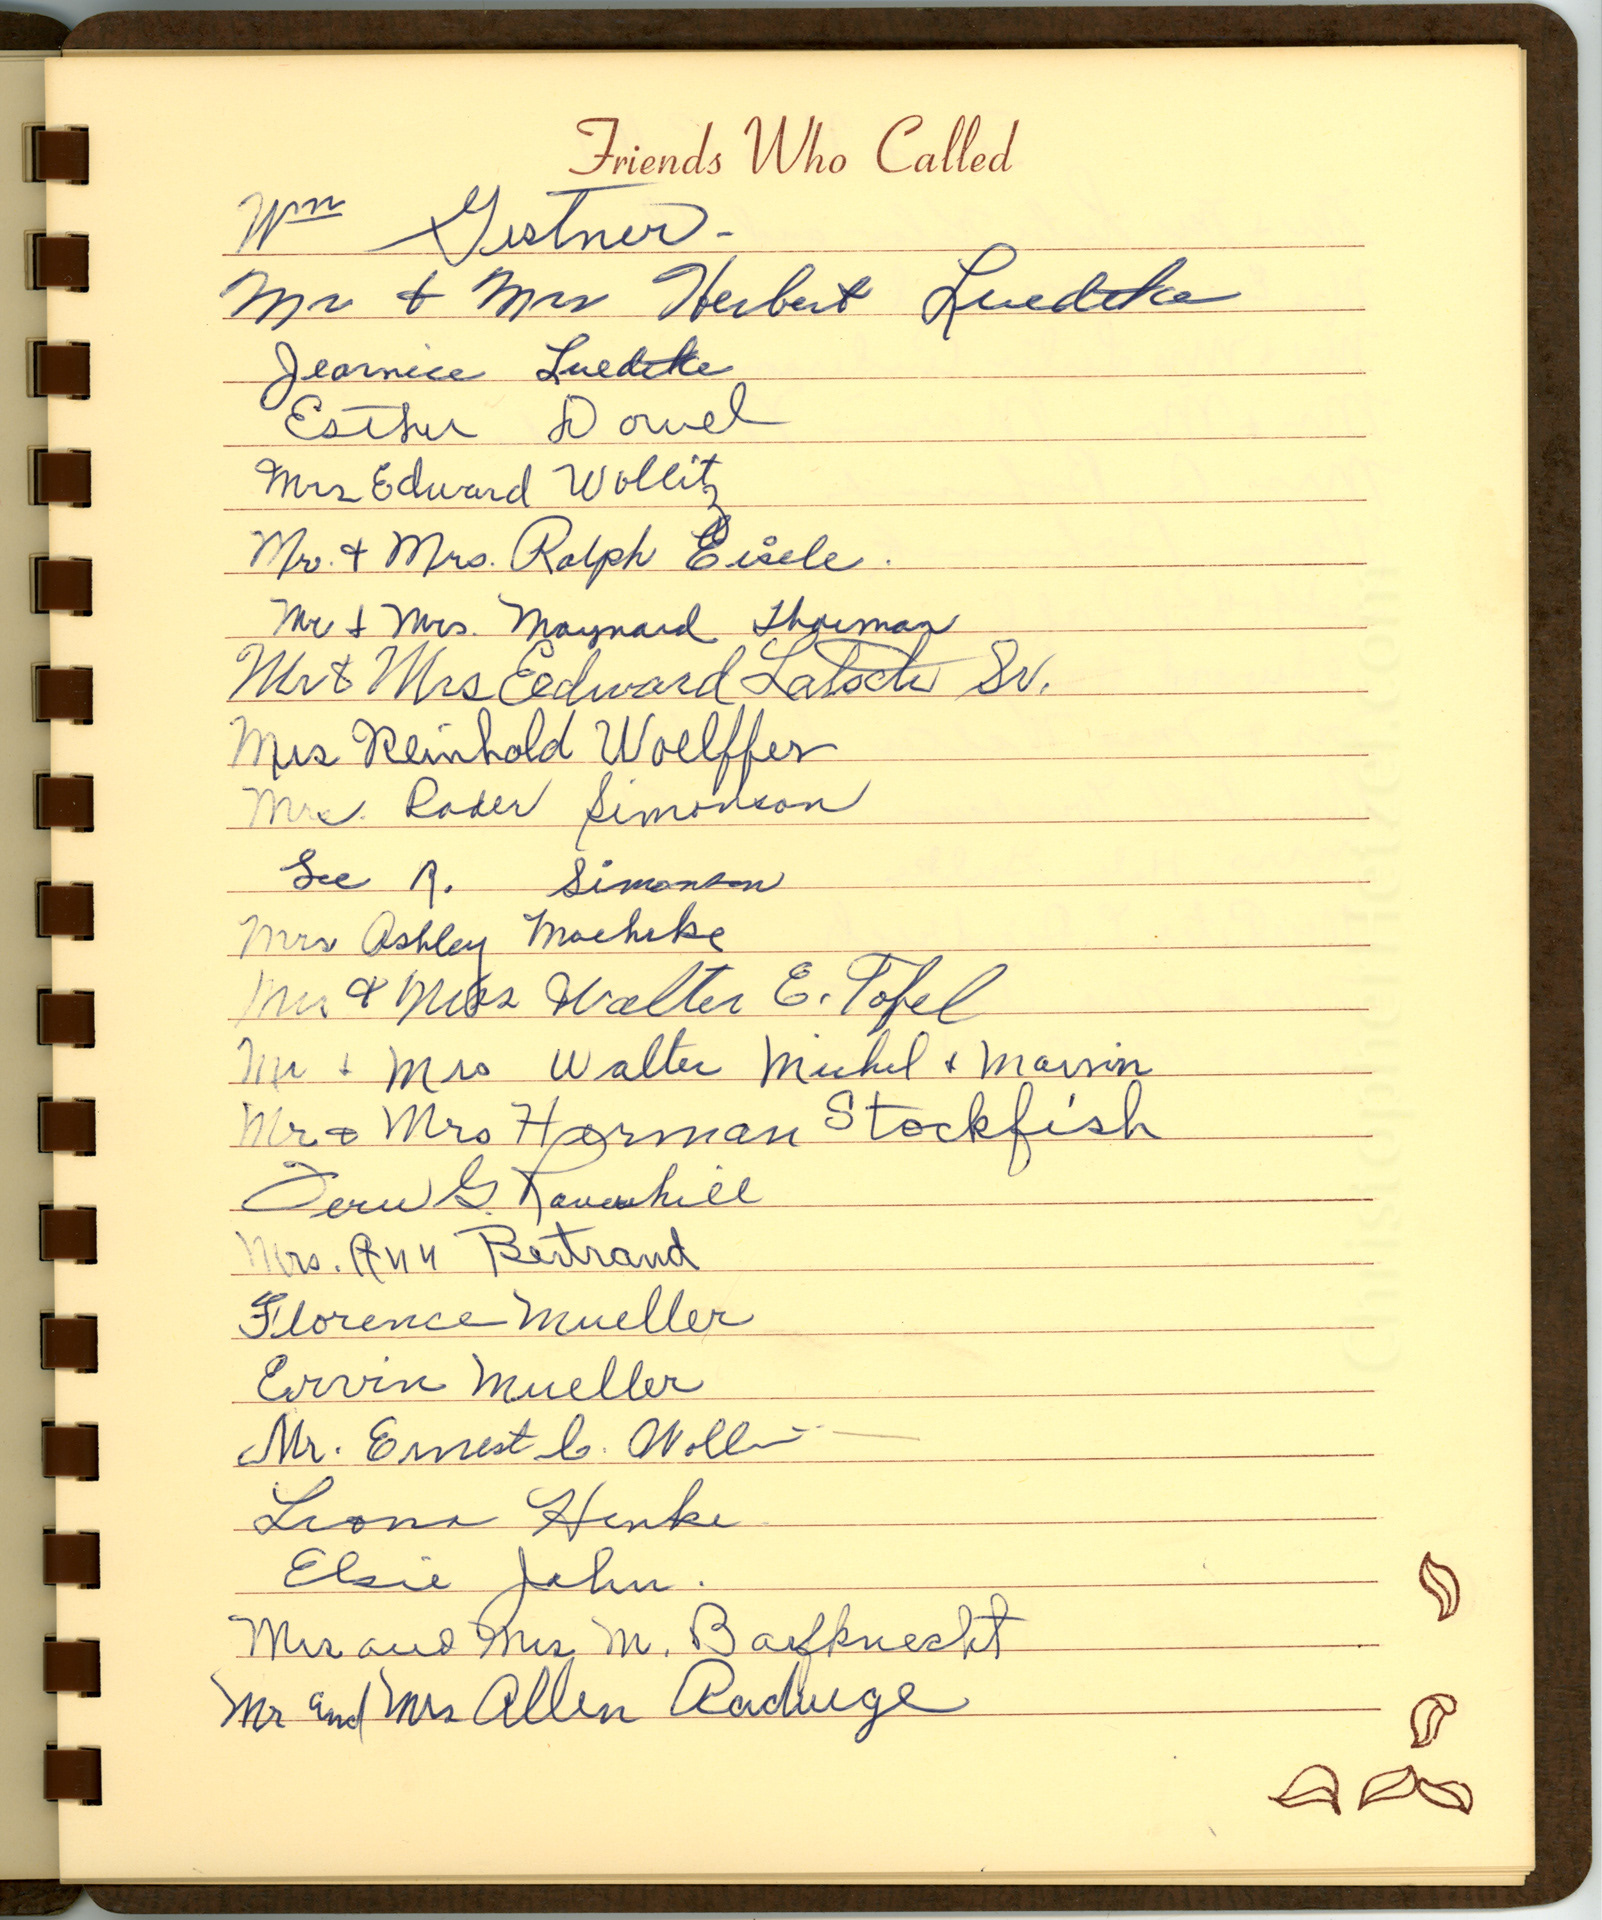 Friends Who Called
Wm Gestner -
Mr & Mrs Herbert Luedtke
Jearnice Luedtke
Esther Dowel
Mrs Edward Wollitz
Mr. & Mrs. Ralph Eisele.
Mr & Mrs. Maynard Thurman
Mr & Mrs Edward Latsch Sr.
Mrs Reinhold Woelffer
Mrs. Rader Simonson
Lee A. Simonson
Mrs Ashley Moehrke
Mr & Mrs Walter E. Tofel
Mr & Mrs Walter Michel & Marvin
Mr & Mrs Herman Stockfish
G. Ravenhill
Mrs. Ann Bertrand
Florence Mueller
Ervin Mueller
Mr. Ernest C.
Leona Henke
Elsie John.
Mr and Mrs M. Barfknecht
Mr and Mrs Allen Raduege